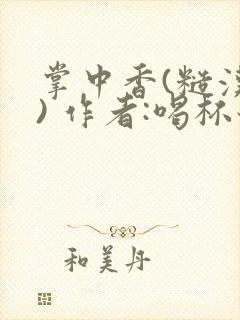 掌中香(糙汉
) 作者:喝杯
和美丹